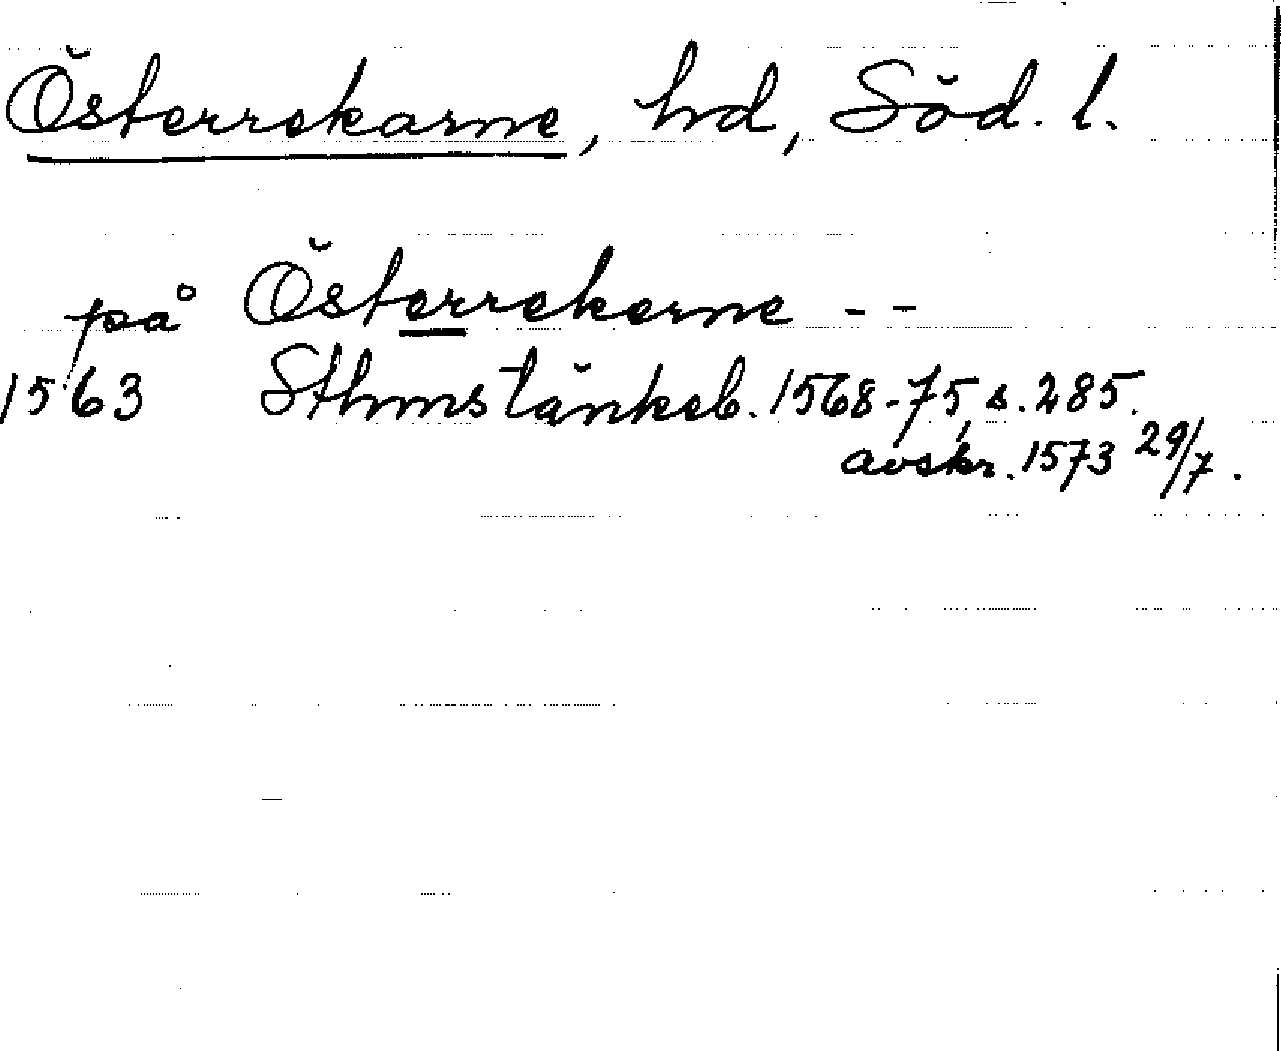 Österrekarne, hd, Söd. l.
på Österrekerne - -
1563 Sthms tänkeb. 1568-75, s. 285.
avskr. 1573 29/7.